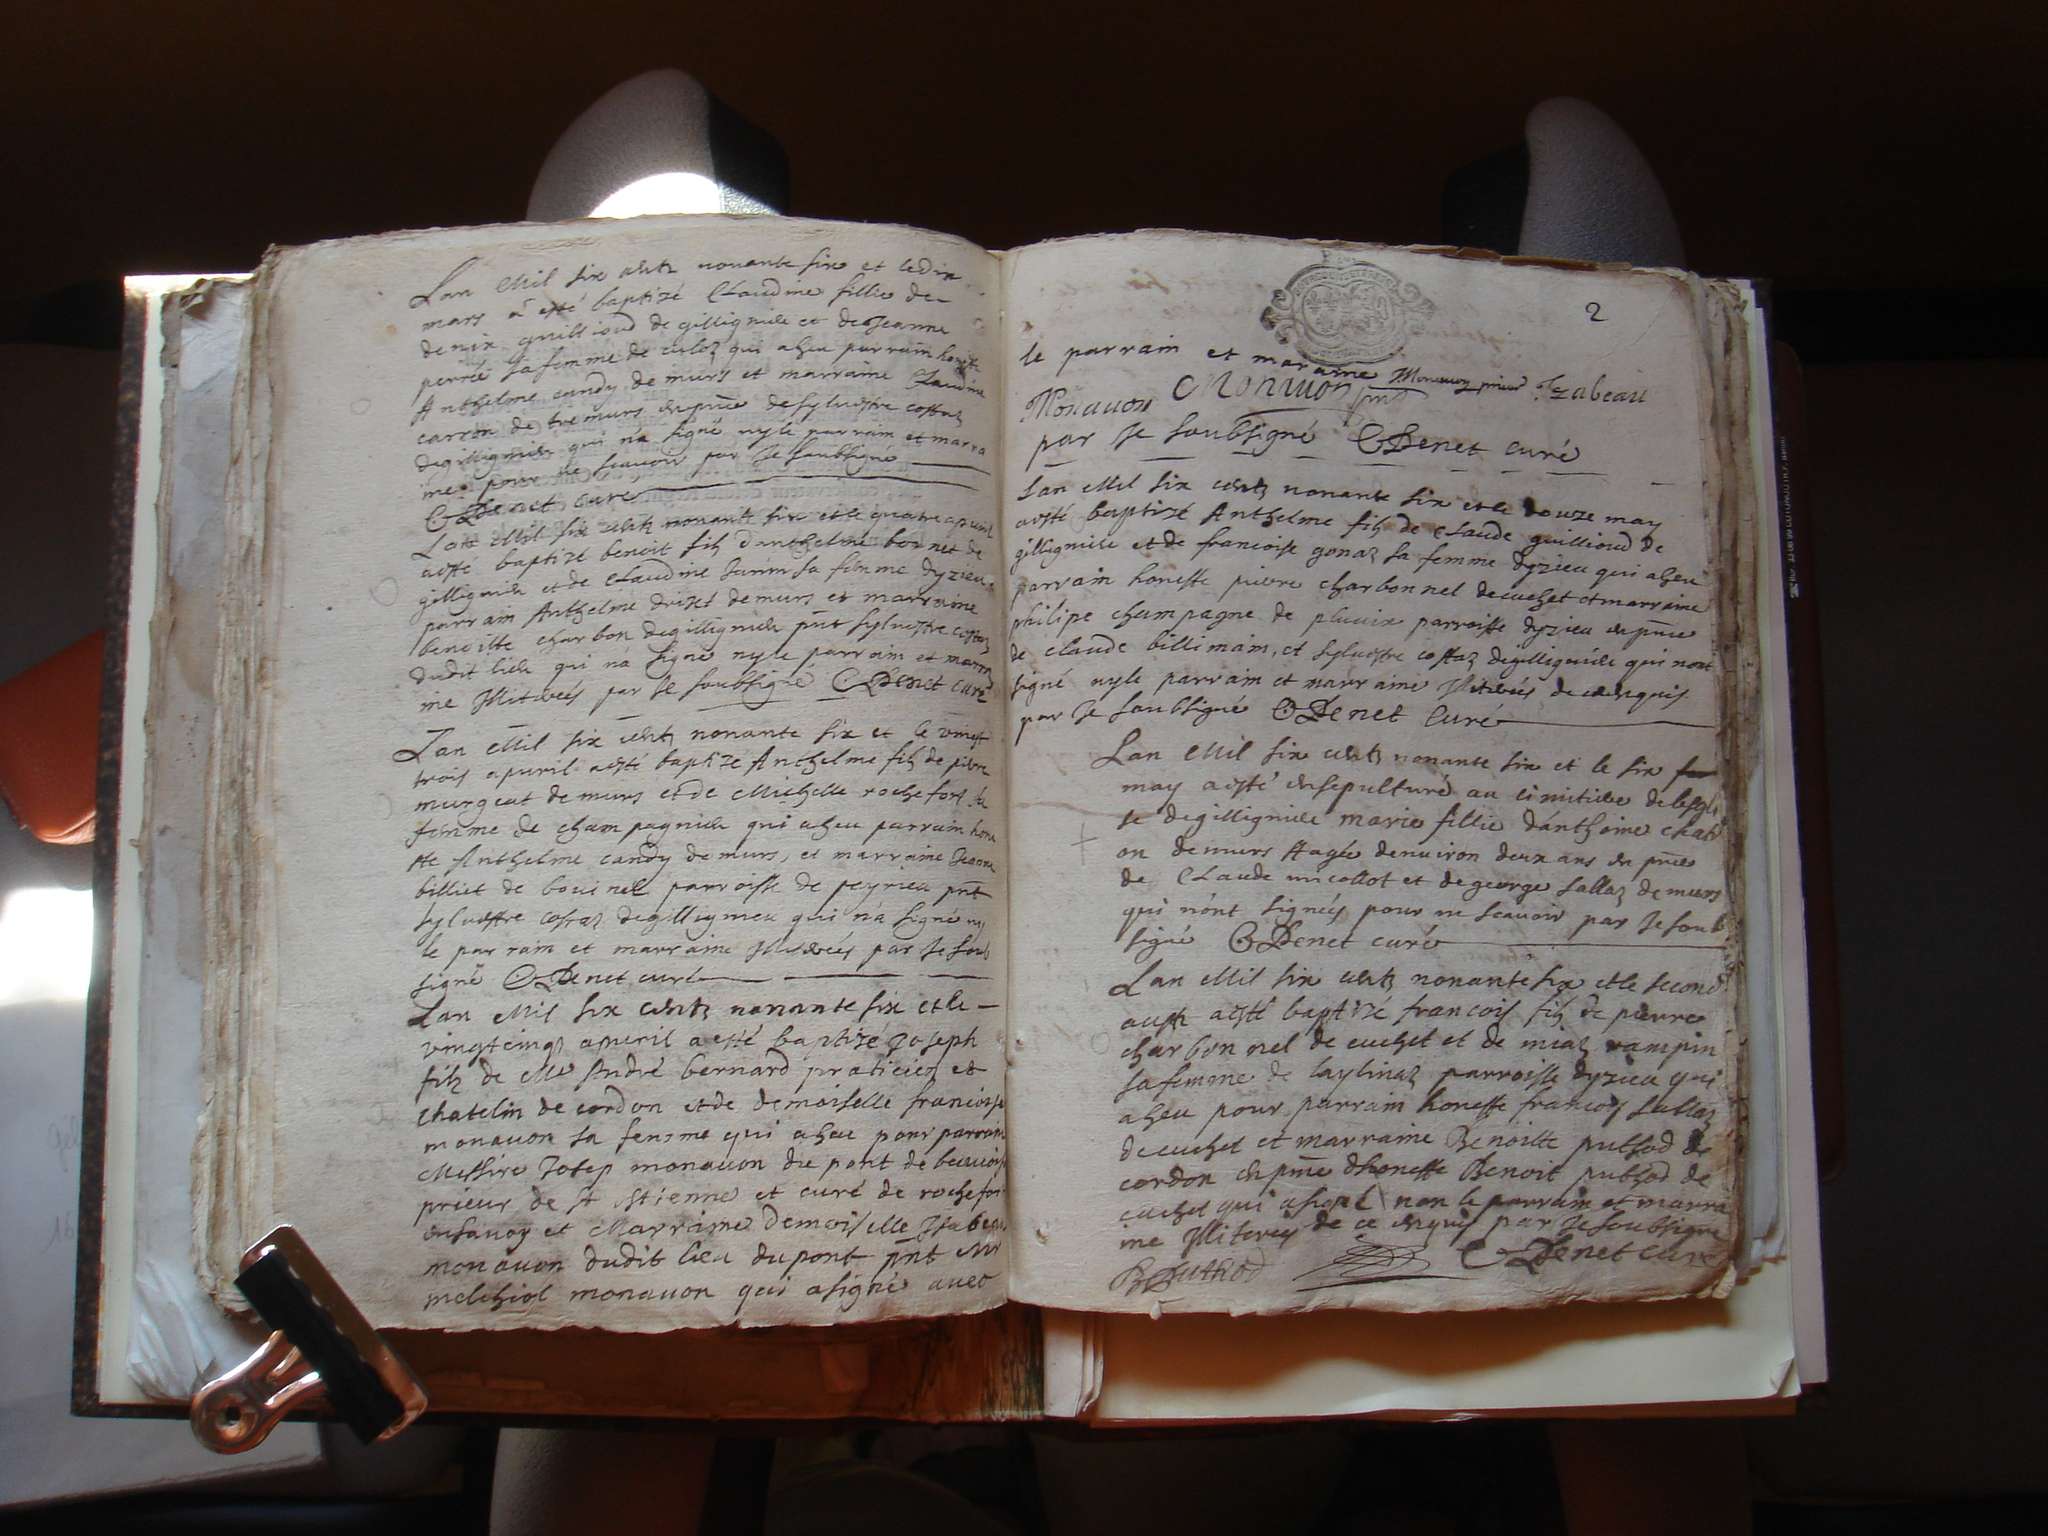 Lan Mil six centz nonante six et le dix
mars a esté baptizé Claudine fillie de
denix guillioud de gillignieu et de Jeanne
perret sa femme de culoz qui a heu parrain honeste
Anthelme candy de murs et marraine Claudine
carron de murs en pnce de sylvestre costaz
degillignieu qui n'a signé ny le parrain et marra
ine pour ne scavoir par Je soubsigné
C Denet curé
Lan Mil six centz nonante six et le quatre apvril
a esté baptizé benoit filz danthelme bonnet de
gillignieu et de Claudine Janin sa femme dyzieu
parrain Anthelme driset de murs et marraine
benoitte charbon degillignieu pnt sylvestre costaz
dudit lieu qui n'a signé ny le parrain et marra
ine Illiterés par Je soubsigné C Denet curé
Lan Mil six centz nonante six et le vingt
trois apuril a esté baptizé Anthelme filz de pierre
murgeat de murs et de Michelle rochefort sa
femme de champagnieu qui a heu parrain hone
ste Anthelme candy de murs, et marraine Jeanne
billiet de bouinel parroisse de peyrieu pnt
sylvestre costaz degilligneu qui n'a signé ny
le parrain et marraine Illiterés par Je soub
signé C Denet curé
Lan Mil six centz nonante six et le
vingt cinqz apuril a esté baptizé Joseph
filz de Me André bernard praticien et
chatelin de cordon et de demoiselle francoise
monauon sa femme qui a heu pour parrain
Messire Josep monauon du pont de beauvoisin
prieur de st Estienne et curé de rochefort
en sauoy et Marraine demoiselle Isabeau
monauon dudit lieu du pont pnt Mr
melchiol monauon qui a signé avec
2
le parrain et marraine Monauon prieur Izabeau
Monauon Monauon pnt
par Je soubsigné C Denet curé
Lan Mil six centz nonante six et le douze may
a esté baptizé Anthelme filz de Claude guillioud de
gillignieu et de francoise gonaz sa femme dyzieu qui a heu
parrain honeste pierre charbonnel de cuchet et marraine
philipe champagne de pluvix parroisse dyzieu en pnce
de claude billimain, et sylvestre costaz degillignieu qui nont
signé ny le parrain et marraine Illiterés de ce enquis
par Je soubsigné C Denet Curé
Lan Mil six centz nonante six et le six
may a esté ensepulturé au cimitiere de lesgli
se degillignieu marie fillie danthoine charb
on de murs Aagée denuiron deux ans en pnce
de Claude micollot et de george sallaz de murs
qui n'ont signés pour ne scavoir par Je soub
signé C Denet curé
Lan Mil six centz nonante six et le second
aust a esté baptizé francois filz de pierre
charbonnel de cuchet et de miaz rampin
sa femme de laylinaz parroisse dyzieu qui
a heu pour parrain honeste francois sallaz
de cuchet et marraine Benoitte puthod de
cordon en pnce dhoneste Benoit puthod de
cuchet qui a signé non le parrain et marra
ine Illiterés de ce enquis par Je soubsigné
B Puthod C Denet curé